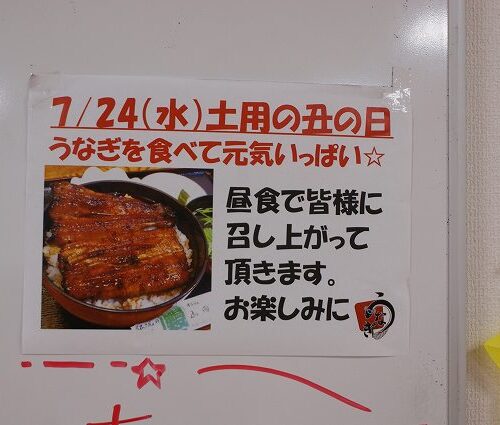 7/24(水)土用の丑の日
うなぎを食べて元気いっぱい☆
昼食で皆様に
召し上がって
頂きます。
お楽しみに
うなぎ